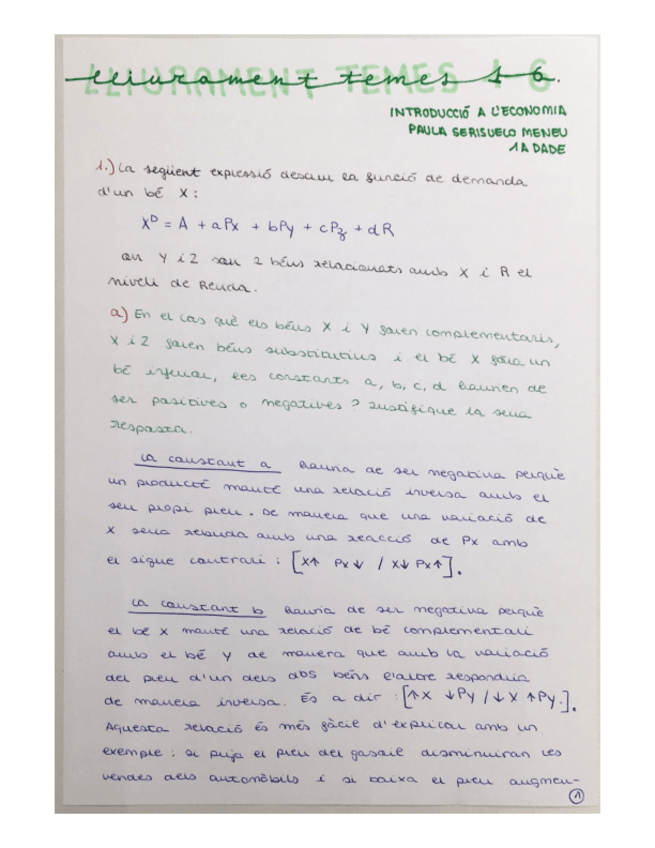 LLIURAMENT TEMES 1-6
lliurament temes 1-6.
INTRODUCCIÓ A L'ECONOMIA
PAULA SERISUELO MENEU
1A DADE
1.) La següent expressió descriu la funció de demanda
d'un bé X :
X^D = A + aPx + bPy + cPz + dR
on Y i Z son 2 béns relacionats amb X i R el
nivell de Renda.
a) En el cas què els béns X i Y foren complementaris,
X i Z foren béns substitutius i el bé X fóra un
bé inferior, les constants a, b, c, d haurien de
ser positives o negatives? Justifique la seua
resposta.
La constant a hauria de ser negativa perquè
un producte manté una relació inversa amb el
seu propi preu. De manera que una variació de
X seria rebuda amb una reacció de Px amb
el signe contrari : [X↑ Px↓ / X↓ Px↑].
La constant b hauria de ser negativa perquè
el bé X manté una relació de bé complementari
amb el bé Y de manera que amb la variació
del preu d'un dels dos béns l'altre respondria
de manera inversa. És a dir : [↑X ↓Py / ↓X ↑Py.].
Aquesta relació és més fàcil d'explicar amb un
exemple : si puja el preu del gasoil disminuiran les
vendes dels automòbils i si baixa el preu augmen-
1